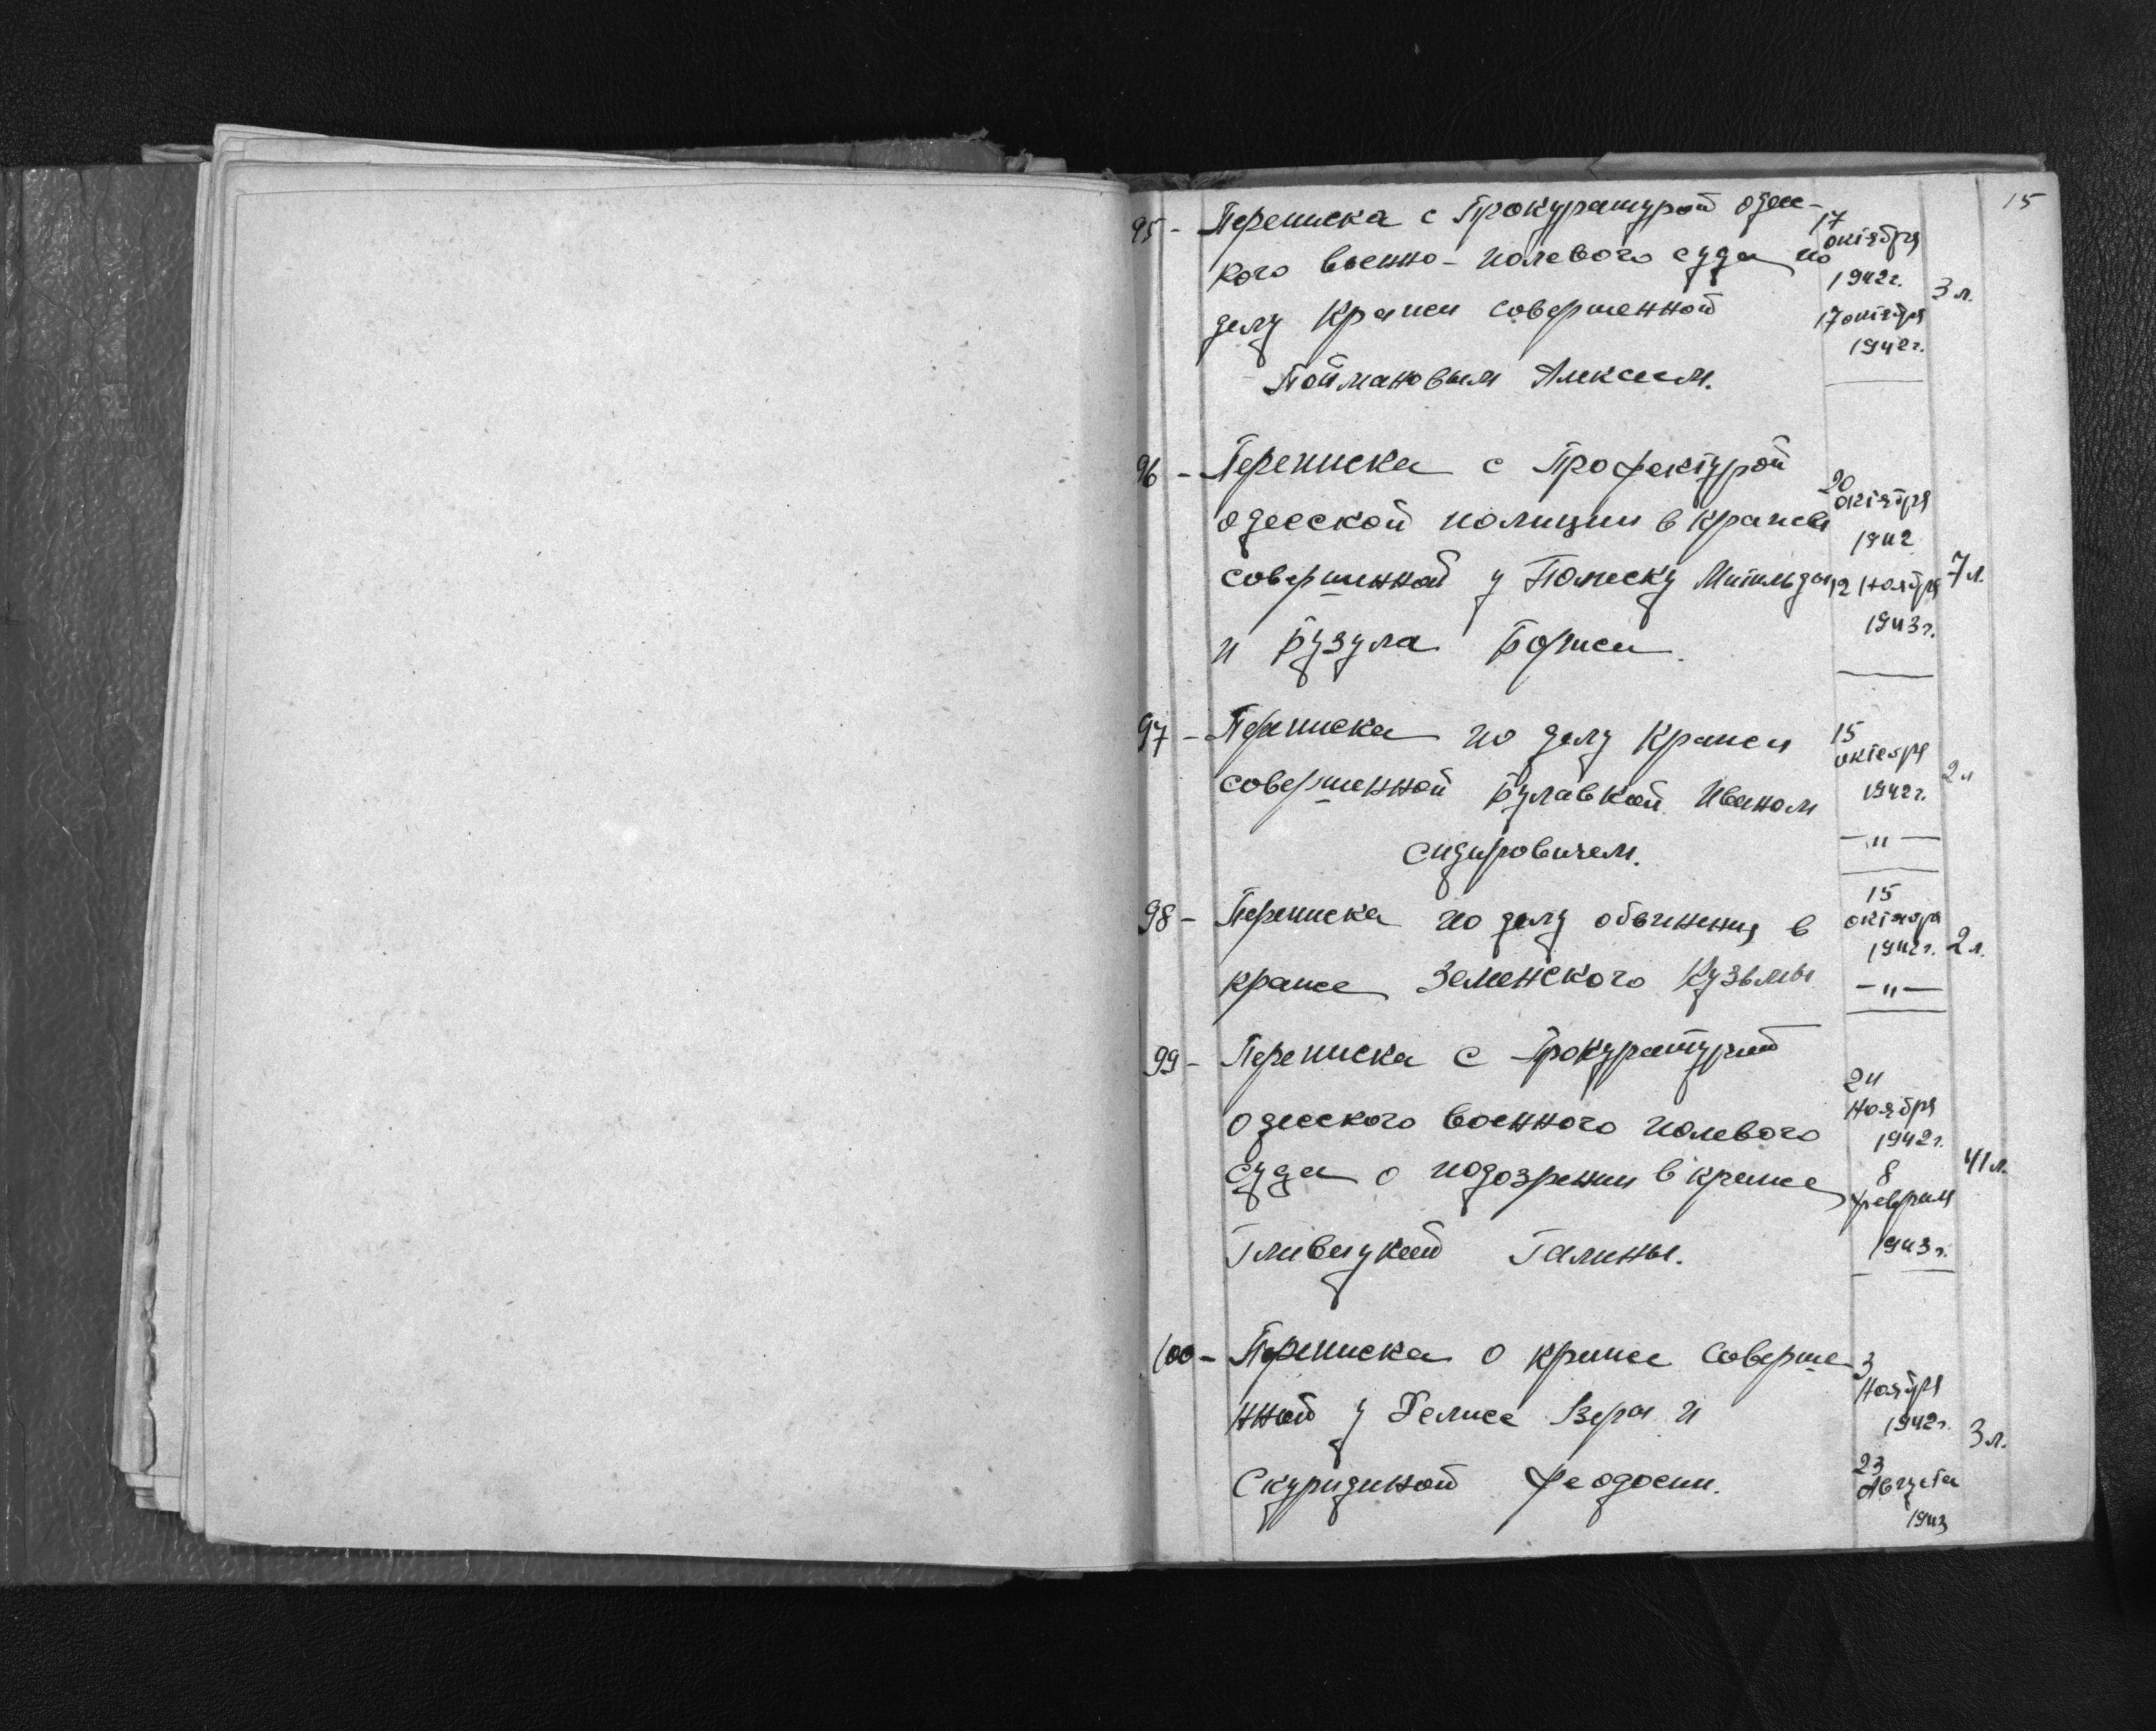 15
95 - Переписка с Прокуратурой одес-
кого военно-полевого суда по
делу кражи совершенной
Поймановым Алексеем.
17
октября
1942г.
17 октября
1942г.
3 л.
96 - Переписка с Профектурой
одесской полиции в кражи
совершенной у Помеску Митильды
и Бузула Бориса.
20
октября
1942
12 ноября
1943г.
7 л.
97 - Переписка по делу кражи
совершенной Булавкой Иваном
Сидировичем.
15
октября
1942г.
—"—
2 л
98 - Переписка по делу обвинения в
краже Земенского Кузьмы
15
октября
1942г.
—"—
2 л.
99 - Переписка с Прокуратурой
одесского военного полевого
суда о подозрении в краже
Гливицкой Галины.
24
ноября
1942г.
8
февраля
1943г.
41 л.
100 - Переписка о краже соверше-
нной у Вера и
Скуридиной Феодосии.
3
ноября
1942г.
23
Августа
1943
3 л.